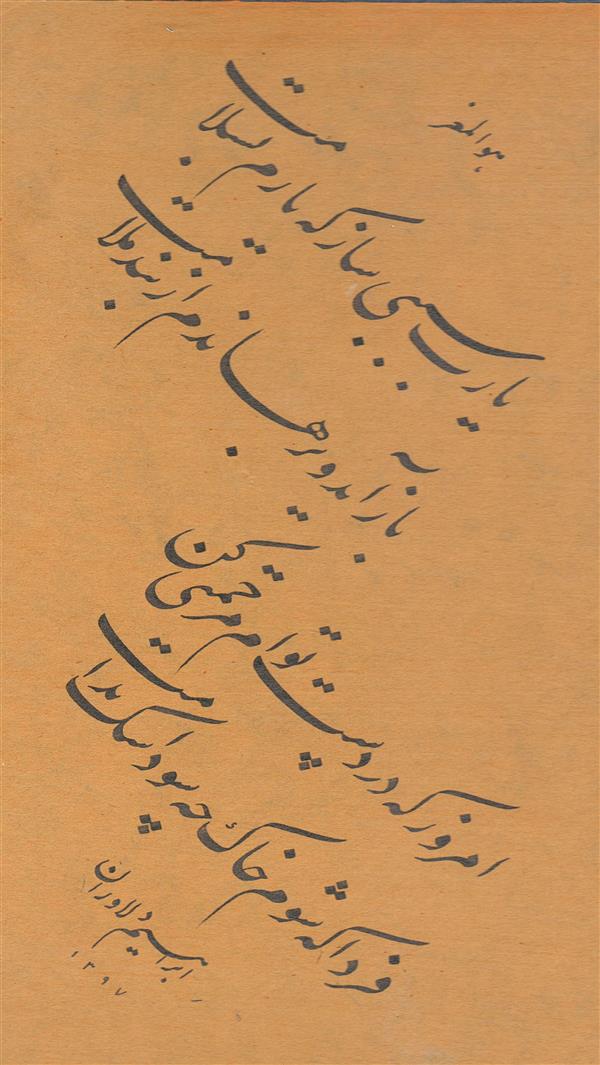 هوالمعز
یارب سببی ساز که یارم بسلامت
بازآید و برهاندم از بند ملامت
امروز که در دست توام مرحمتی کن
فردا که شوم خاک چه سود اشک ندامت
ابراهیم دلاوران
۱۳۹۷